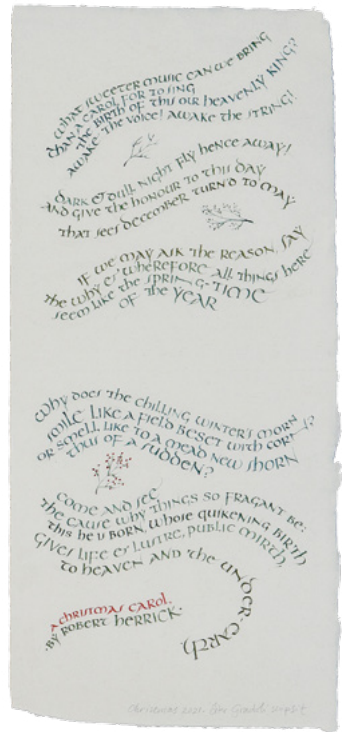 What sweeter music can we bring
than a carol for to sing
the birth of this our heavenly King?
Awake the voice! Awake the string!
Dark & dull night fly hence away!
And give the honour to this day
that sees December turn'd to May
If we may ask the reason, say
the why & wherefore all things here
seem like the spring-time
of the year
Why does the chilling winter's morn
smile like a field beset with corn?
or smell, like to a mead new shorn
thus of a sudden?
Come and see
the cause why things so fragant be:
this he is born, whose quikening birth
gives life & lustre, public mirth,
to heaven and the under-earth.
A Christmas Carol,
·by Robert Herrick·
Christmas